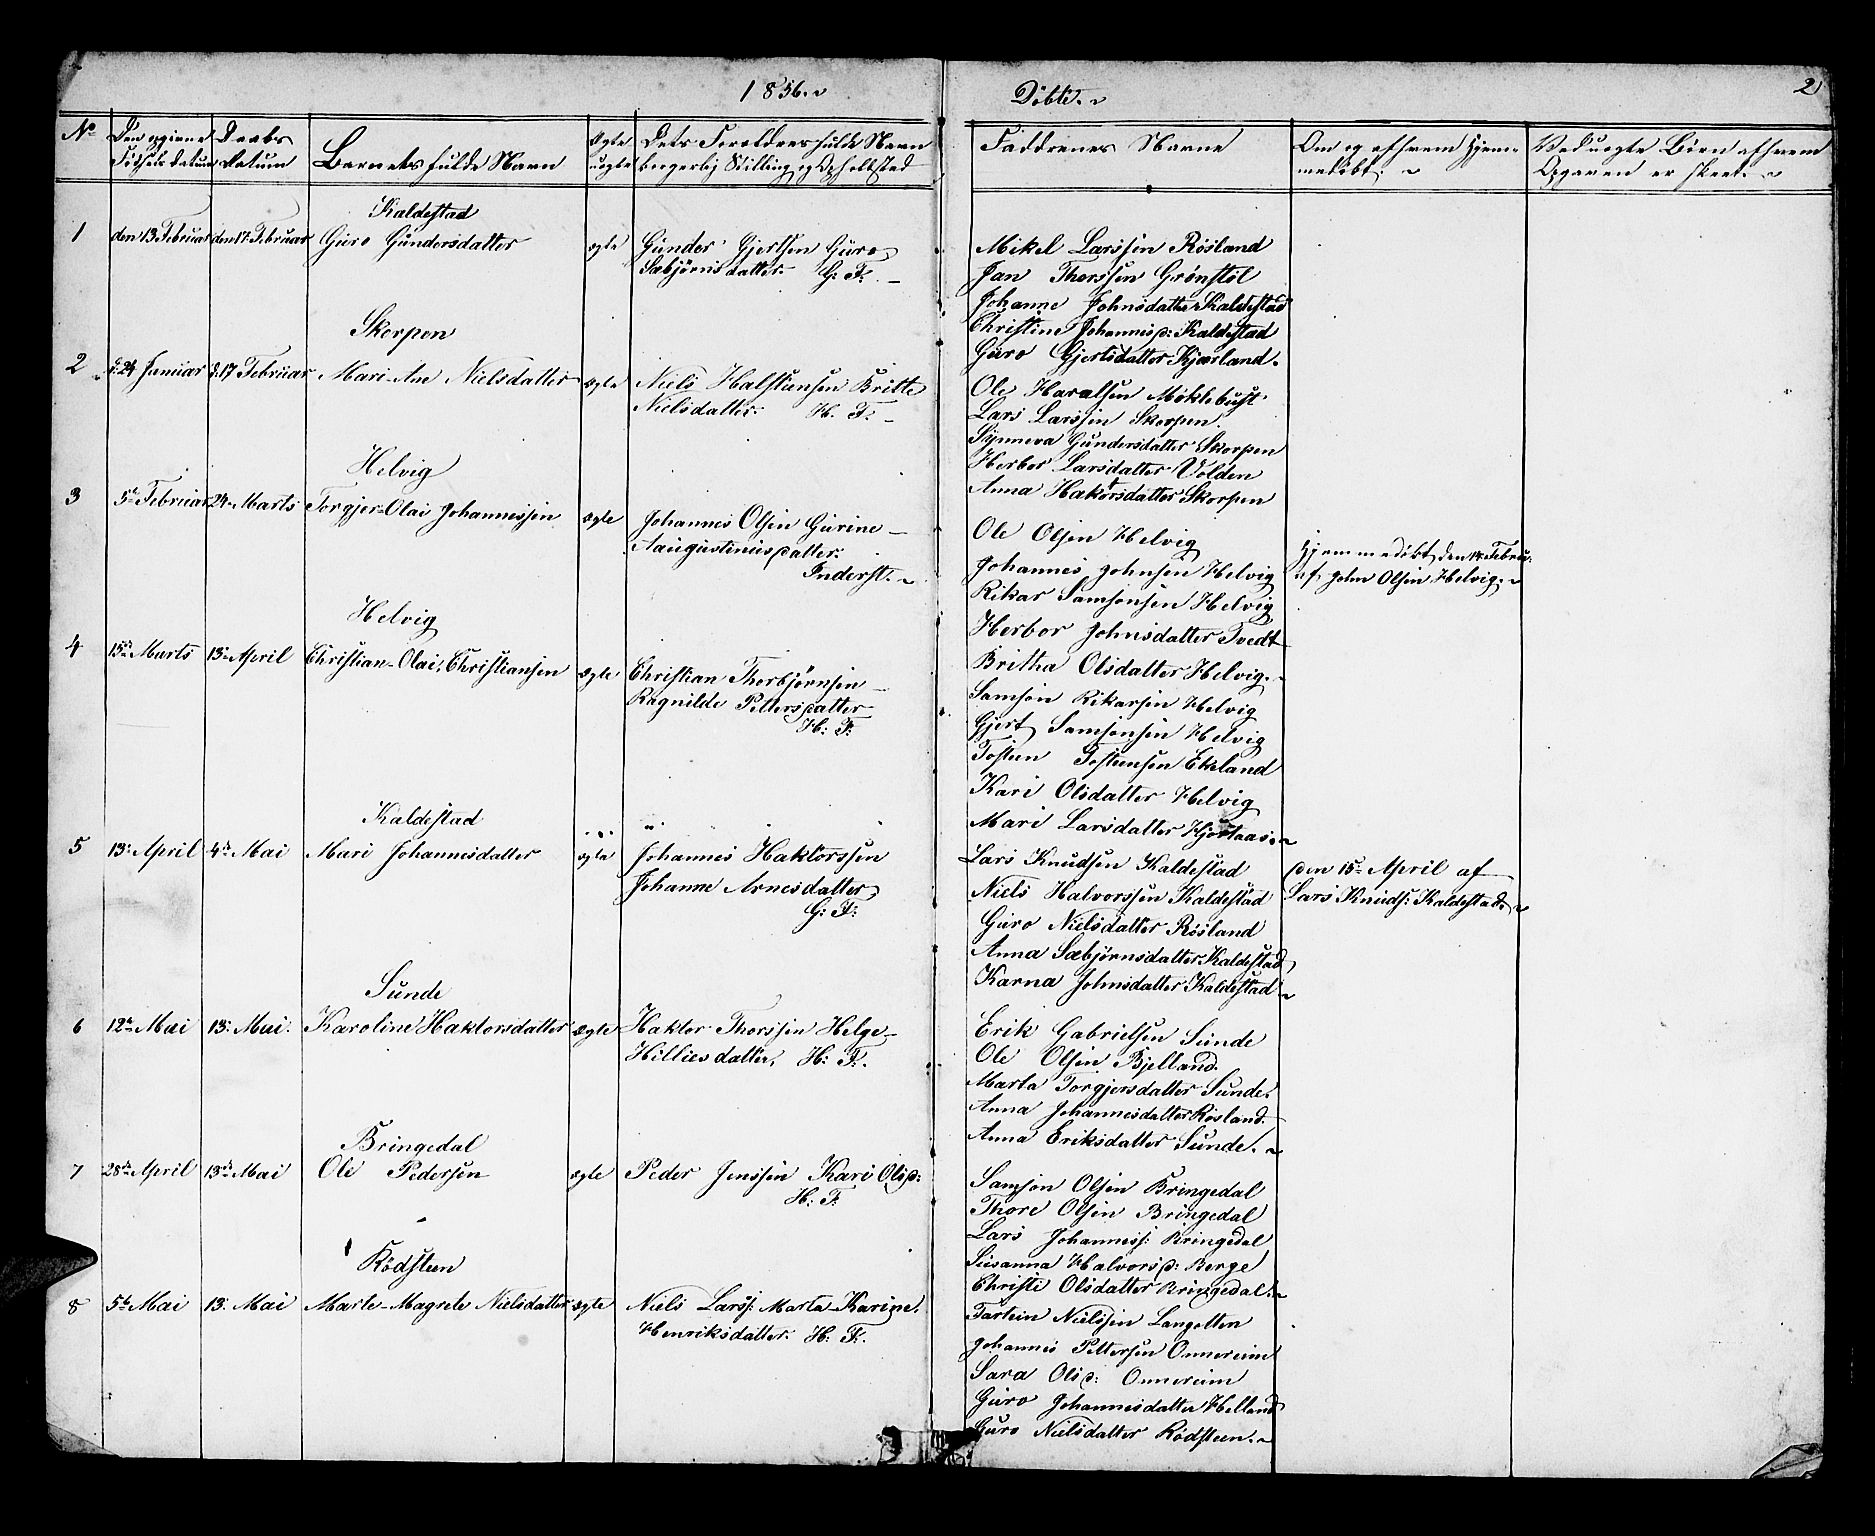 1856.
Døbte.
2
No
Den opgivne
Fødsels datum
Daabs
Datum
Barnets fulde Navn
Ægte
uægte
Dets Foreldres fulde Navn
borgerlig Stilling og Opholdsted
Faddrenes Navne
Om og af hvem hjem-
medøbt.
Ved uegte Børn af hvem
Opgaven er skeet.
Kaldestad
1 den 13 Februar den 17 Februar Guro Gundersdatter ægte Gunder Gjertsen Guro
Sæbjørnsdatter. G: F:
Mikel Larssen Røsland
Jan Thorssen Grønstøl
Johanne Johnsdatter Kaldestad
Christine Johannisd: Kaldestad
Guro Gjertsdatter Kjærland.
Skorpen
2 d. 24 Januar d. 17 Februar Mari-Ane Nielsdatter ægte Niels Halstensen Britte
Nielsdatter. H. F:
Ole Haralsen Møklebust
Lars Larssen Skorpen.
Synneva Gundersdatter Skorpen
Herbor Larsdatter Volden
Anna Haktorsdatter Skorpen
Helvig
3 5te Februar 24 Marts Torgjer-Olai Johannessen ægte Johannes Olsen Gurine
Aaugustinusdatter.
Inderst.
Ole Olsen Helvig
Johannes Johnsen Helvig
Rikar Samsonsen Helvig
Herbor Johnsdatter Tvedt
Britha Olsdatter Helvig.
Hjemmedøbt den 14 Febru.
af John Olsen Helvig.
Helvig
4 15de Marts 13de April Christian-Olai, Christiansen ægte Christian Thorbjørnsen
Ragnilde Pettersdatter
H: F:
Samson Rikarsen Helvig
Gjert Samsonsen Helvig
Tosten Tostensen Ekeland
Kari Olsdatter Helvig
Mari Larsdatter Hjortaas.
Kaldestad
5 13: April 4de Mai Mari Johannesdatter ægte Johannes Haktorssen
Johanne Arnesdatter
G: F:
Lars Knudsen Kaldestad
Niels Halvorssen Kaldestad
Guro Nielsdatter Røsland
Anna Sæbjørnsdatter Kaldestad
Karna Johnsdatter Kaldestad
den 15 April af
Lars Knuds: Kaldestad.
Sunde
6 12te Mai 13: Mai. Karoline Haktorsdatter ægte Haktor Thorssen Helge
Hilliesdatter, H: F.
Erik Gabrielsen Sunde
Ole Olsen Bjelland.
Marta Torgjersdatter Sunde.
Anna Johannesdatter Røsland.
Anna Eriksdatter Sunde.
Bringedal
7 28de April 13de Mai Ole Pedersen ægte Peder Jenssen Kari Olsd:
H: F:
Samson Olsen Bringedal
Thore Olsen Bringedal
Lars Johanness: Bringedal
Susanna Halvorsd: Berge
Christe Olsdatter Bringedal.
Rødsteen
8 5te Mai 13: Mai Marte-Magrete Nielsdatter ægte Niels Larss: Marta-Karine
Henriksdatter. H: F:
Tartein Nielssen Langetten
Johannes Pettersen Onnereim
Sara Olsd: Onnereim
Guro Johannesdatter Helland
Guro Nielsdatter Rødsteen.